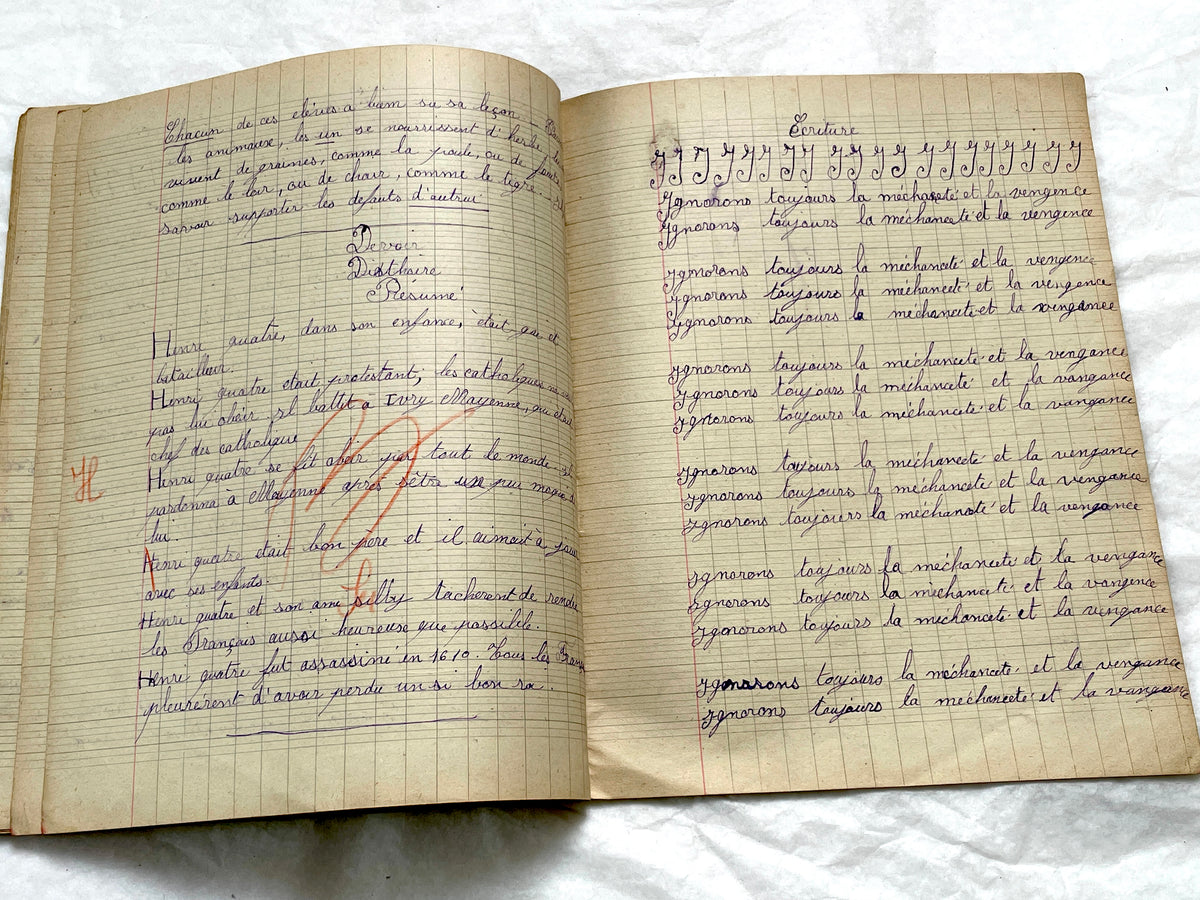 Chacun de ces élèves a bien su sa leçon.
les animaux, les un se nourrissent d'herbe
vivent de graines, comme la poule, ou de
comme le loir, ou de chair, comme le tigre.
savoir supporter les defauts d'autrui
Devoir
Disthoire
Résumé
Henri quatre, dans son enfance, était gai et
batailleur.
Henri quatre était protestant; les catholiques
pas lui obair. il battit a Ivry Mayenne, qui était
chef des catholique
Henri quatre se fit abéir par tout le monde.
pardonna a Mayenne après s'etre un peu moqué
lui.
H
Henri quatre etait bon père et il aimait à
avec ses enfants.
Henri quatre et son ami Silly tacherent de rendre
les Français aussi heureuse que possible.
Henri quatre fut assassiné en 1610. Tous les
pleurérent d'avoir perdu un si bon
Ecriture
J J J J J J J J J J J J J J J J J J J
Ignorons toujours la méchanceté et la vengence
Ignorons toujours la méchanceté et la vengence
Ignorons toujours la méchanceté et la vengence
Ignorons toujours la méchanceté et la vengence
Ignorons toujours la méchanceté et la vengance
Ignorons toujours la méchanceté et la vengance
Ignorons toujours la méchanceté et la vangance
Ignorons toujours la méchanceté et la vangance
Ignorons toujours la méchanceté et la vengance
Ignorons toujours la méchanceté et la vengance
Ignorons toujours la méchanceté et la vengance
Ignorons toujours la méchanceté et la vengance
Ignorons toujours la méchanceté et la vangence
Ignorons toujours la méchanceté et la vengance
Ignorons toujours la méchanceté et la vengance
Ignorons toujours la méchanceté et la vangance